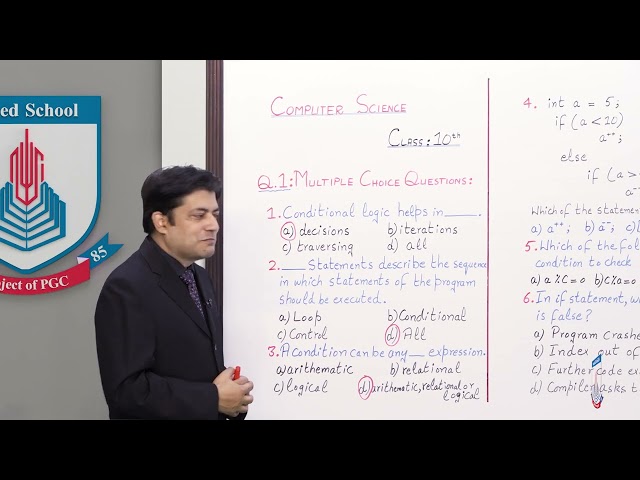 ed School
85
ject of PGC
COMPUTER SCIENCE
CLASS: 10th
Q.1: MULTIPLE CHOICE QUESTIONS:
1. Conditional logic helps in ____.
a) decisions b) iterations
c) traversing d) all
2. ____ Statements describe the sequence
in which statements of the program
should be executed.
a) Loop b) Conditional
c) Control d) All
3. A condition can be any __ expression.
a) arithmetic b) relational
c) logical d) arithmetic, relational or
logical
4. int a = 5;
if (a < 10)
a++;
else
if (a >
Which of the statemen
a) a++; b) a--; c)
5. Which of the fol
condition to check
a) a % C = 0 b) C % a = 0
6. In if statement, w
is false?
a) Program crashe
b) Index out of
c) Further code ex
d) Compiler asks t